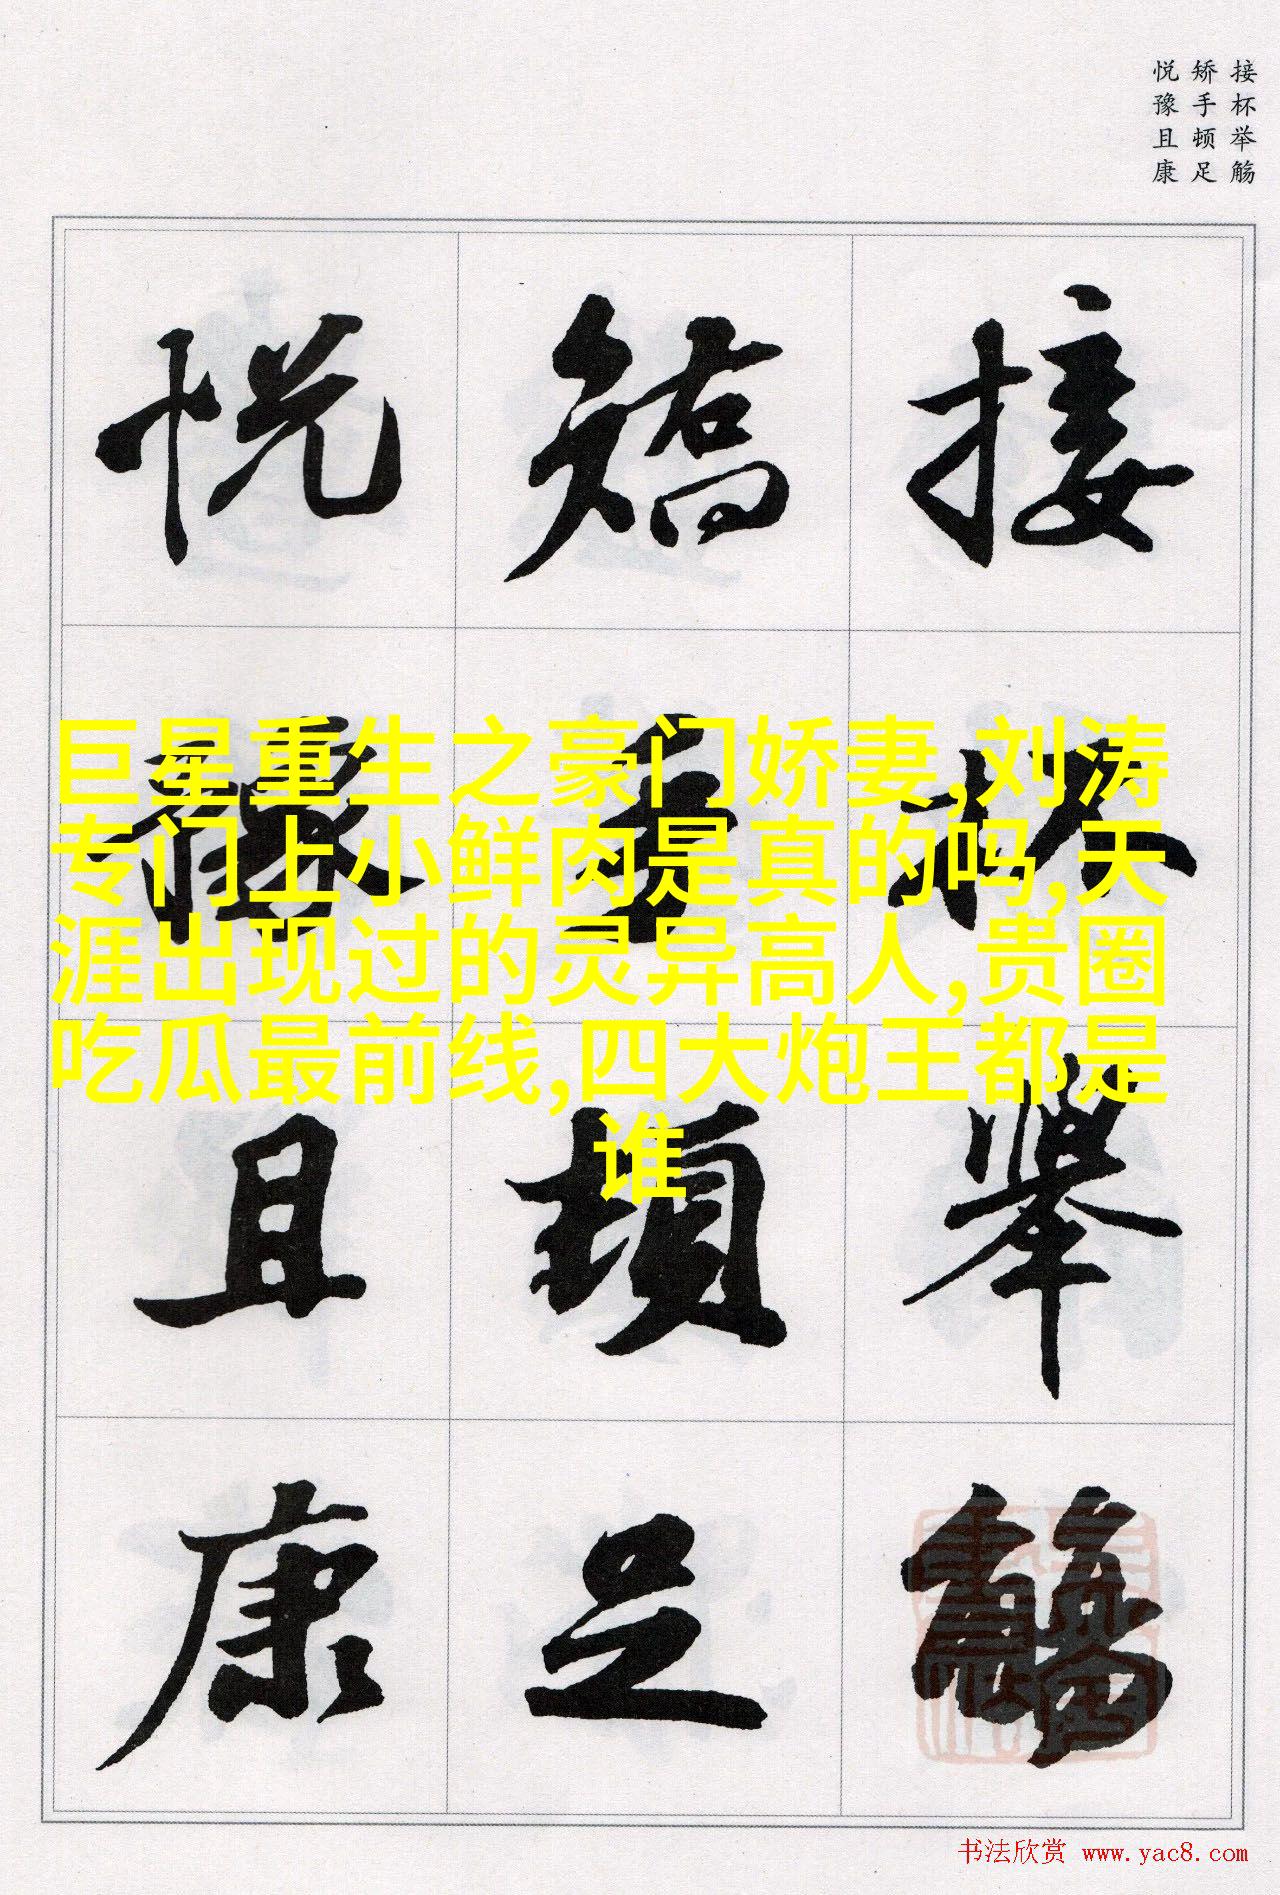 接杯举觞
矫手顿足
悦豫且康
接杯舉觴
矯手頓足
悦豫且康
巨星重生之豪门娇妻,刘涛
专门上小鲜肉是真的吗,天
涯出现过的灵异高人,贵圈
吃瓜最前线,四大炮王都是
谁
书法欣赏 www.yac8.com